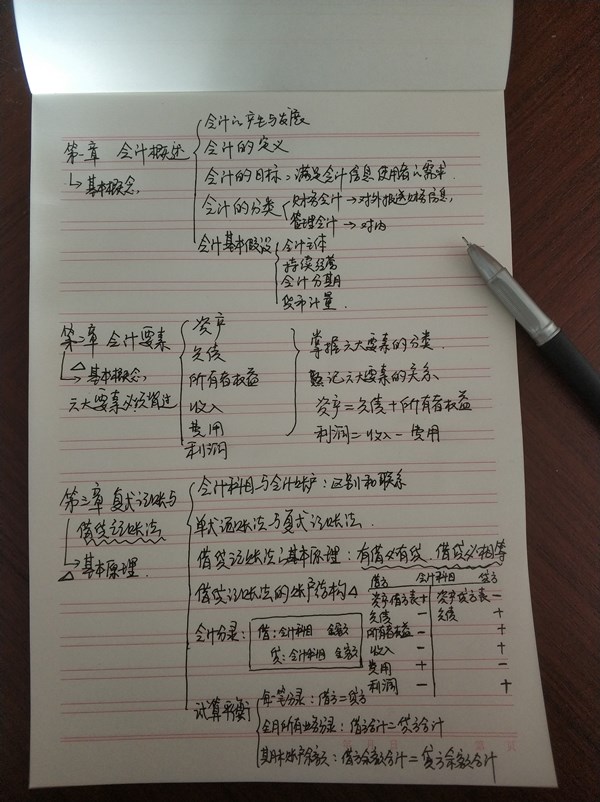 会计的产生与发展
第一章 会计概述
会计的定义
会计的目标:满足会计信息使用者的需求.
↳ 基本概念,
会计的分类
财务会计→对外报送财务信息,
管理会计→对内
会计基本假设
会计主体
持续经营
会计分期
货币计量.
第二章 会计要素
↳ 基本概念,
六大要素必须背过
资产
负债
所有者权益
收入
费用
利润
掌握六大要素的分类.
熟记六大要素的关系
资产=负债+所有者权益
利润=收入-费用
第三章 复式记账与
借贷记账法
↳ 基本原理.
会计科目与会计账户:区别和联系
单式记账法与复式记账法.
借贷记账法的基本原理:有借必有贷、借贷必相等
借贷记账法的账户结构
借方 会计科目 贷方
资产借方表+ 资产贷方表-
负债 - 负债 +
所有者权益 - +
收入 - +
费用 + -
利润 - +
会计分录:
借:会计科目 金额
贷:会计科目 金额
试算平衡
每一笔分录:借方=贷方
全月所有业务分录:借方合计=贷方合计
期末账户余额:借方余额合计=贷方余额合计